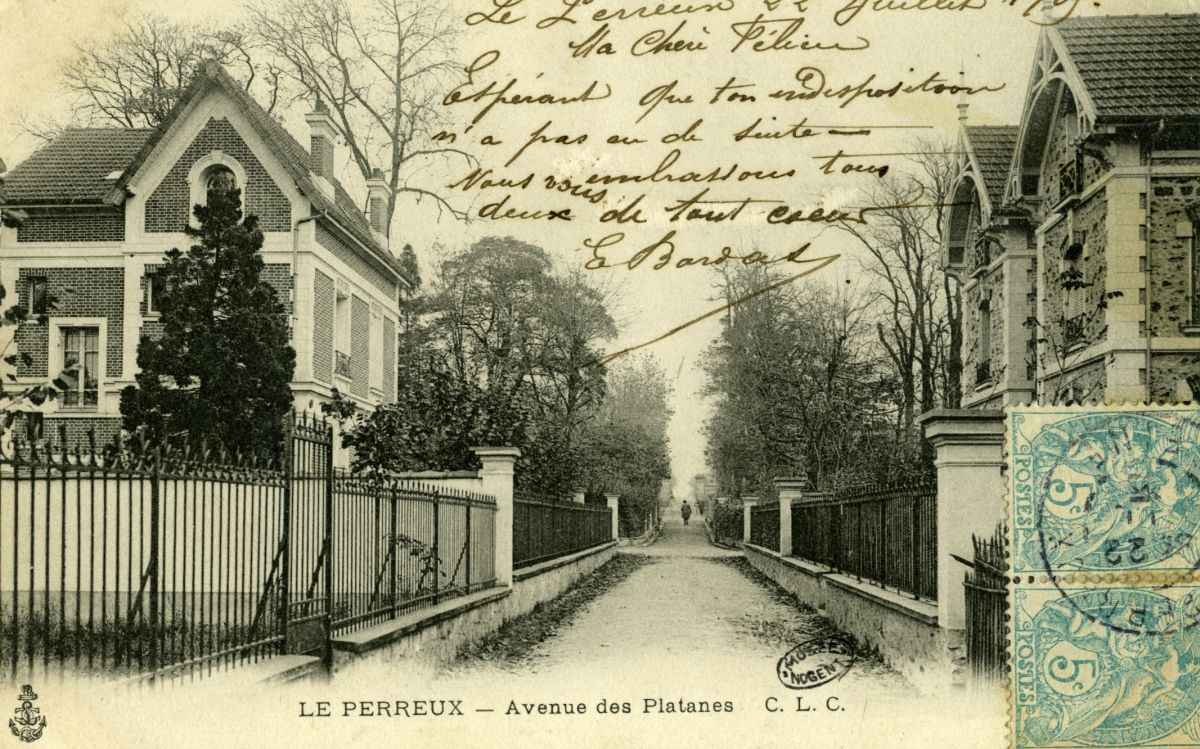 Le Perreux 22 Juillet
Ma Cheri Félicie
Espérant que ton indisposition
n'a pas eu de suite
Nous vous embrassons tous
deux de tout coeur
E Bordas
POSTES
5c
22
POSTES
5c
MUSÉE
NOGENT
LE PERREUX — Avenue des Platanes C. L. C.